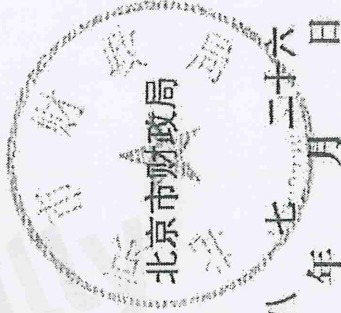 北京市财政局
八年 七月 二十六日